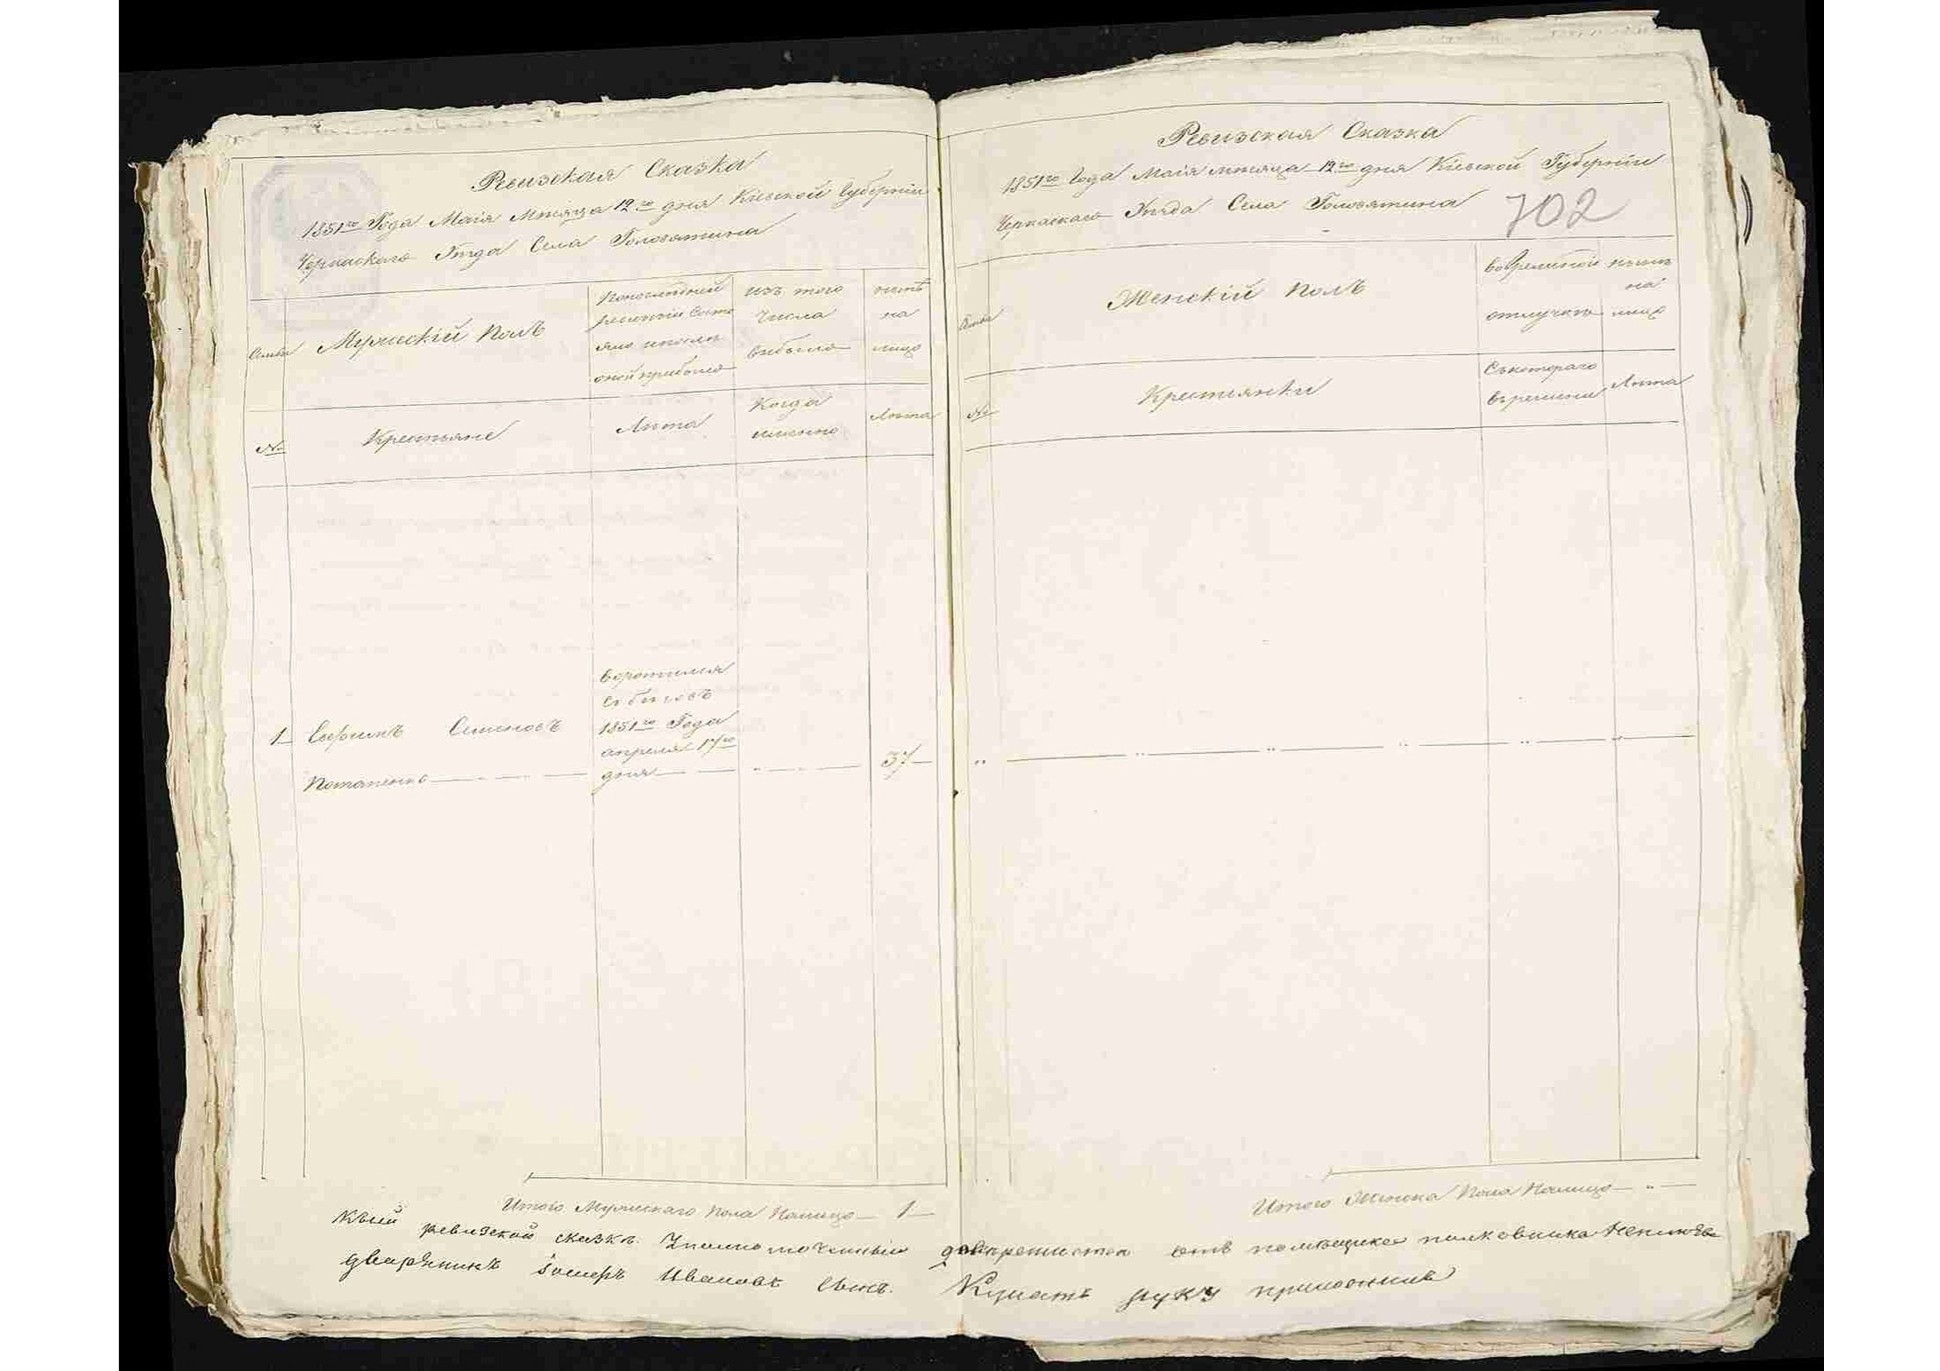 Ревизская Сказка
1851го Года Маія Мѣсяца 12го дня Кіевской Губерніи
Черкаскаго Уѣзда Села Головятина
Семьи
Мужескій Полъ
Попослѣдней
ревизіи Состо
яло ипослѣ
оной прибыло
изъ того
Числа
выбыло
нынѣ
на
лицо
№
Крестьяне
Лѣта
Когда
именно
Лѣта
воротился
сбеговъ
1 Семеновъ 1851го Года
апреля 17го
Потапенко дня 37
Итого Мужескаго пола Налицо 1
Ревизская Сказка
1851го Года Маія мѣсяца 12го дня Кіевской Губерніи
Черкаскаго Уѣзда Села Головятина
702
Семьи
Женскій полъ
вовремѣнной
отлучкѣ
нынѣ
на
лицо
№
Крестьянки
Съкотораго
времени
Лѣта
Итого Женска пола Налицо
Къ сей ревизской сказкѣ Уполномоченный отъ помѣщика полковника
дворянинъ Ивановъ Сынъ руку приложилъ